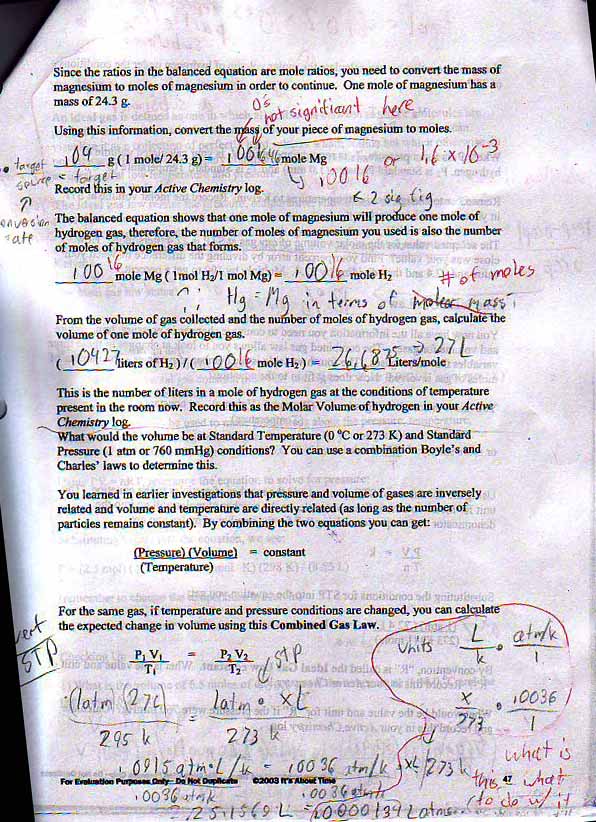 Since the ratios in the balanced equation are mole ratios, you need to convert the mass of
magnesium to moles of magnesium in order to continue. One mole of magnesium has a
mass of 24.3 g.
0's not significant here
Using this information, convert the mass of your piece of magnesium to moles.
.04 g ( 1 mole/ 24.3 g) = mole Mg or 1.6 x 10-3
.0016
Record this in your Active Chemistry log.
2 sig fig
The balanced equation shows that one mole of magnesium will produce one mole of
hydrogen gas, therefore, the number of moles of magnesium you used is also the number
of moles of hydrogen gas that forms.
.0016 mole Mg ( 1mol H2/1 mol Mg) = .0016 mole H2
# of moles
in terms of
From the volume of gas collected and the number of moles of hydrogen gas, calculate the
volume of one mole of hydrogen gas.
( .0427 liters of H2 ) / ( .0016 mole H2 ) = 26.6875 → 27L Liters/mole
This is the number of liters in a mole of hydrogen gas at the conditions of temperature
present in the room now. Record this as the Molar Volume of hydrogen in your Active
Chemistry log.
What would the volume be at Standard Temperature (0 °C or 273 K) and Standard
Pressure (1 atm or 760 mmHg) conditions? You can use a combination Boyle's and
Charles' laws to determine this.
You learned in earlier investigations that pressure and volume of gases are inversely
related and volume and temperature are directly related (as long as the number of
particles remains constant). By combining the two equations you can get:
(Pressure) (Volume) = constant
(Temperature)
For the same gas, if temperature and pressure conditions are changed, you can calculate
the expected change in volume using this Combined Gas Law.
Units L/k • atm/k / 1
P1 V1 = P2 V2 STP
T1 T2
STP
(1atm)(27L) = 1atm • XL
295 k 273 k
x/273 • .0036/1
.0915 atm•L/k = .0036 atm/k • xL 273k
what is
this & what
to do w/ it
For Evaluation Purposes Only- Do Not Duplicate ©2003 It's About Time 47
.0036 atm/k .0036 atm/k